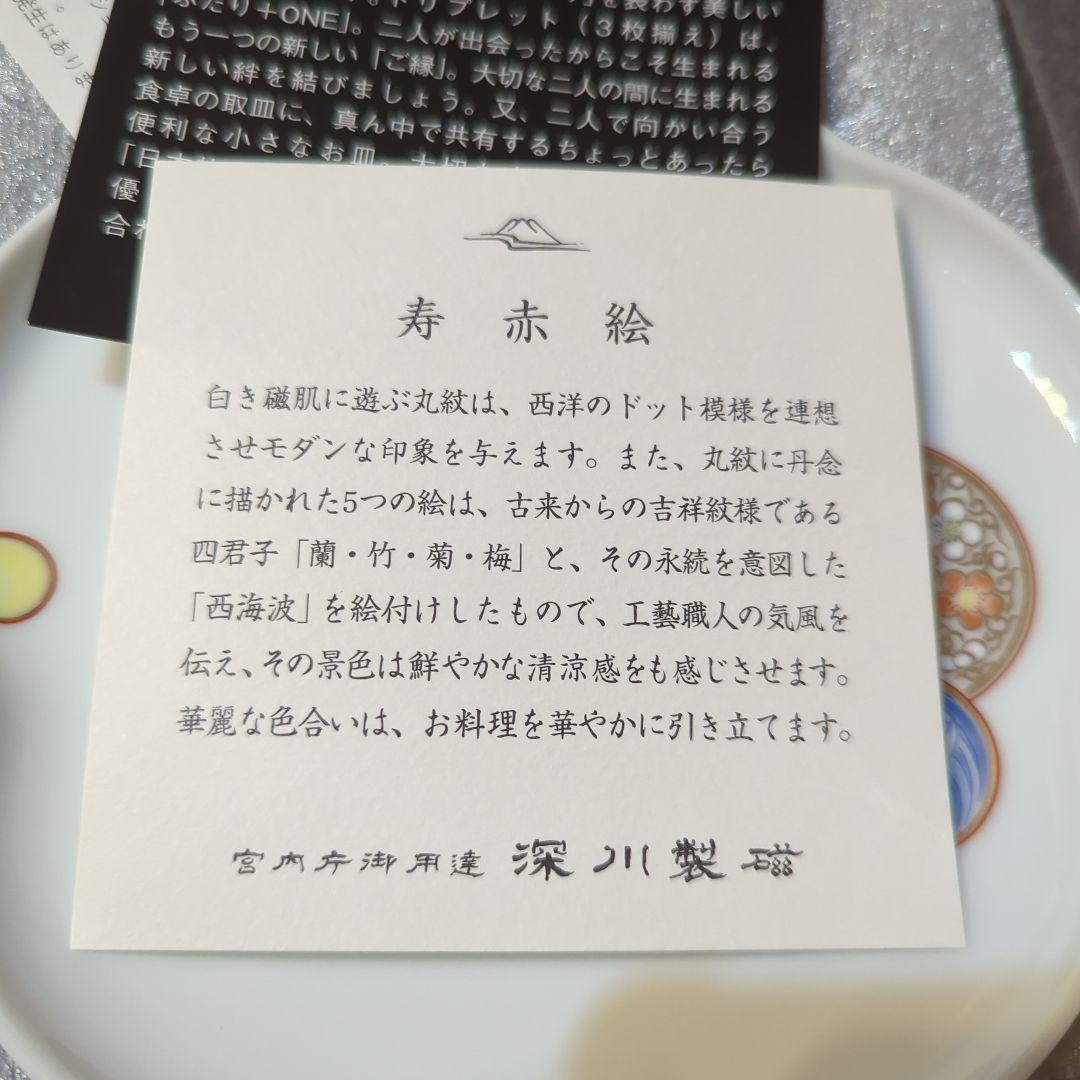 発生はあり
「ふたり+ONE」。トリプレット(3枚揃え)は、
もう一つの新しい「ご縁」。二人が出会ったからこそ生まれる
新しい絆を結びましょう。大切な二人の間に生まれる
食卓の取皿に、真ん中で共有するちょっとあったら
便利な小さなお皿。又、二人で向かい合う
優
合わ
寿赤絵
白き磁肌に遊ぶ丸紋は、西洋のドット模様を連想
させモダンな印象を与えます。また、丸紋に丹念
に描かれた5つの絵は、古来からの吉祥紋様である
四君子「蘭・竹・菊・梅」と、その永続を意図した
「西海波」を絵付けしたもので、工藝職人の気風を
伝え、その景色は鮮やかな清涼感をも感じさせます。
華麗な色合いは、お料理を華やかに引き立てます。
宮内庁御用達 深川製磁